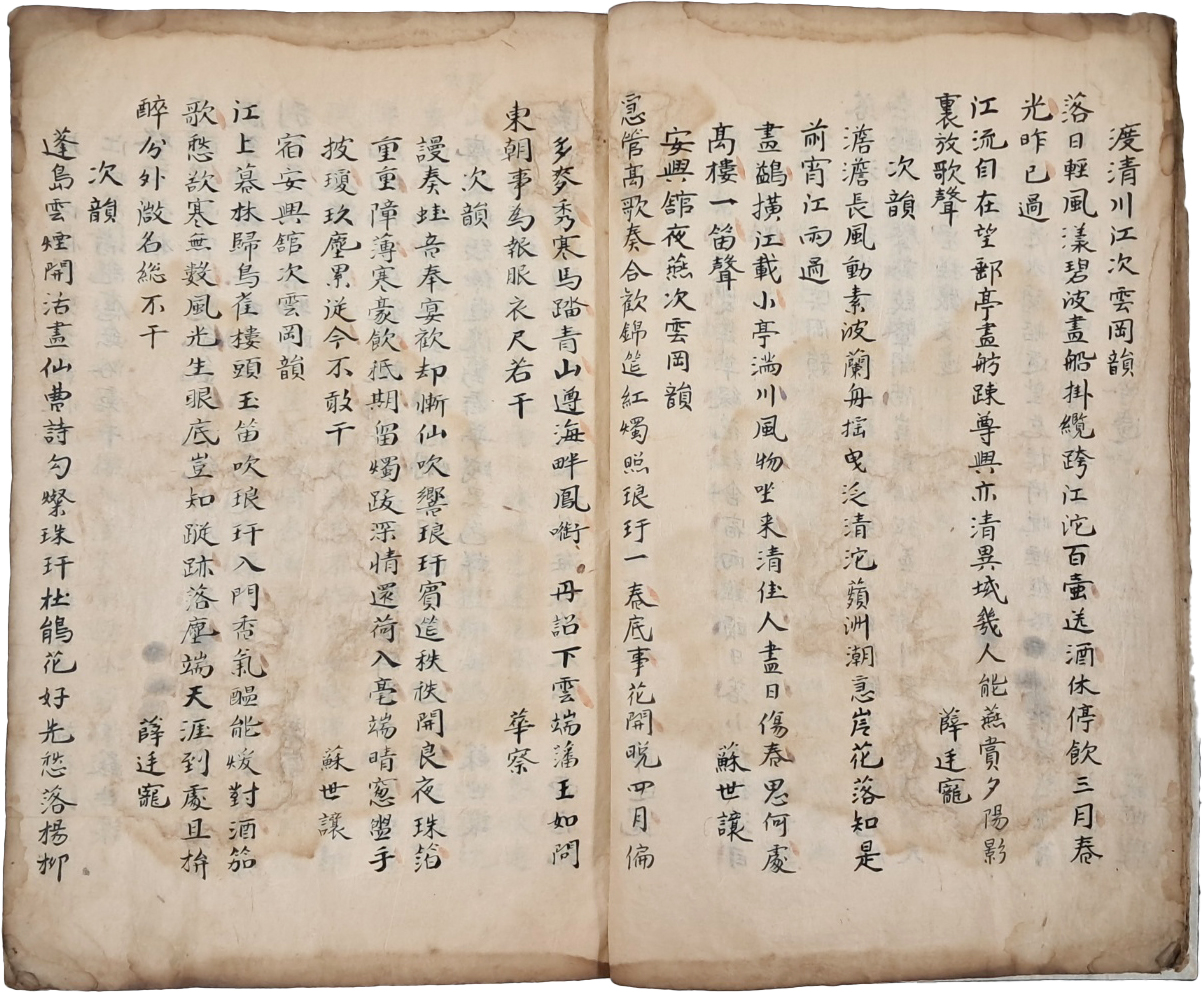 渡清川江次雲岡韻
落日輕風漾碧波畫船掛纜跨江沱百壷送酒休停飲三月春
光昨已過
江流自在望郵亭盡舫踈尊興亦清異域幾人能燕賞夕陽影
裏放歌聲 薛廷寵
次韻
澹澹長風動素波蘭舟揺曳泛清沱蘋洲潮急岸花落知是
前宵江雨過
畫鷁撗江載小亭湍川風物坐来清佳人盡日傷春思何處
高樓一笛聲 蘇世讓
安興舘夜燕次雲岡韻
急管高歌奏合歡錦筵紅燭照琅玕一春底事花開晩四月偏
多麥秀寒馬踏青山遵海畔鳳啣丹詔下雲端藩王如問
東朝事為報服衣尺若干 華察
次韻
謾奏蛙音奉宴歡却慚仙吹響琅玕賓筵秩秩開良夜珠箔
重重障薄寒豪飲抵期留燭跋深情還荷入毫端晴窓盥手
披瓊玖塵累従今不敢干 蘇世讓
宿安興舘次雲岡韻
江上暮林歸鳥雀樓頭玉笛吹琅玕入門香氣醖能煖對酒笳
歌愁欲寒無数風光生眼底豈知蹤跡落塵端天涯到處且拚
醉分外㣲名総不干 薛廷寵
次韻
蓬島雲煙開活畫仙曹詩勾燦珠玕杜鵑花好先愁落楊柳